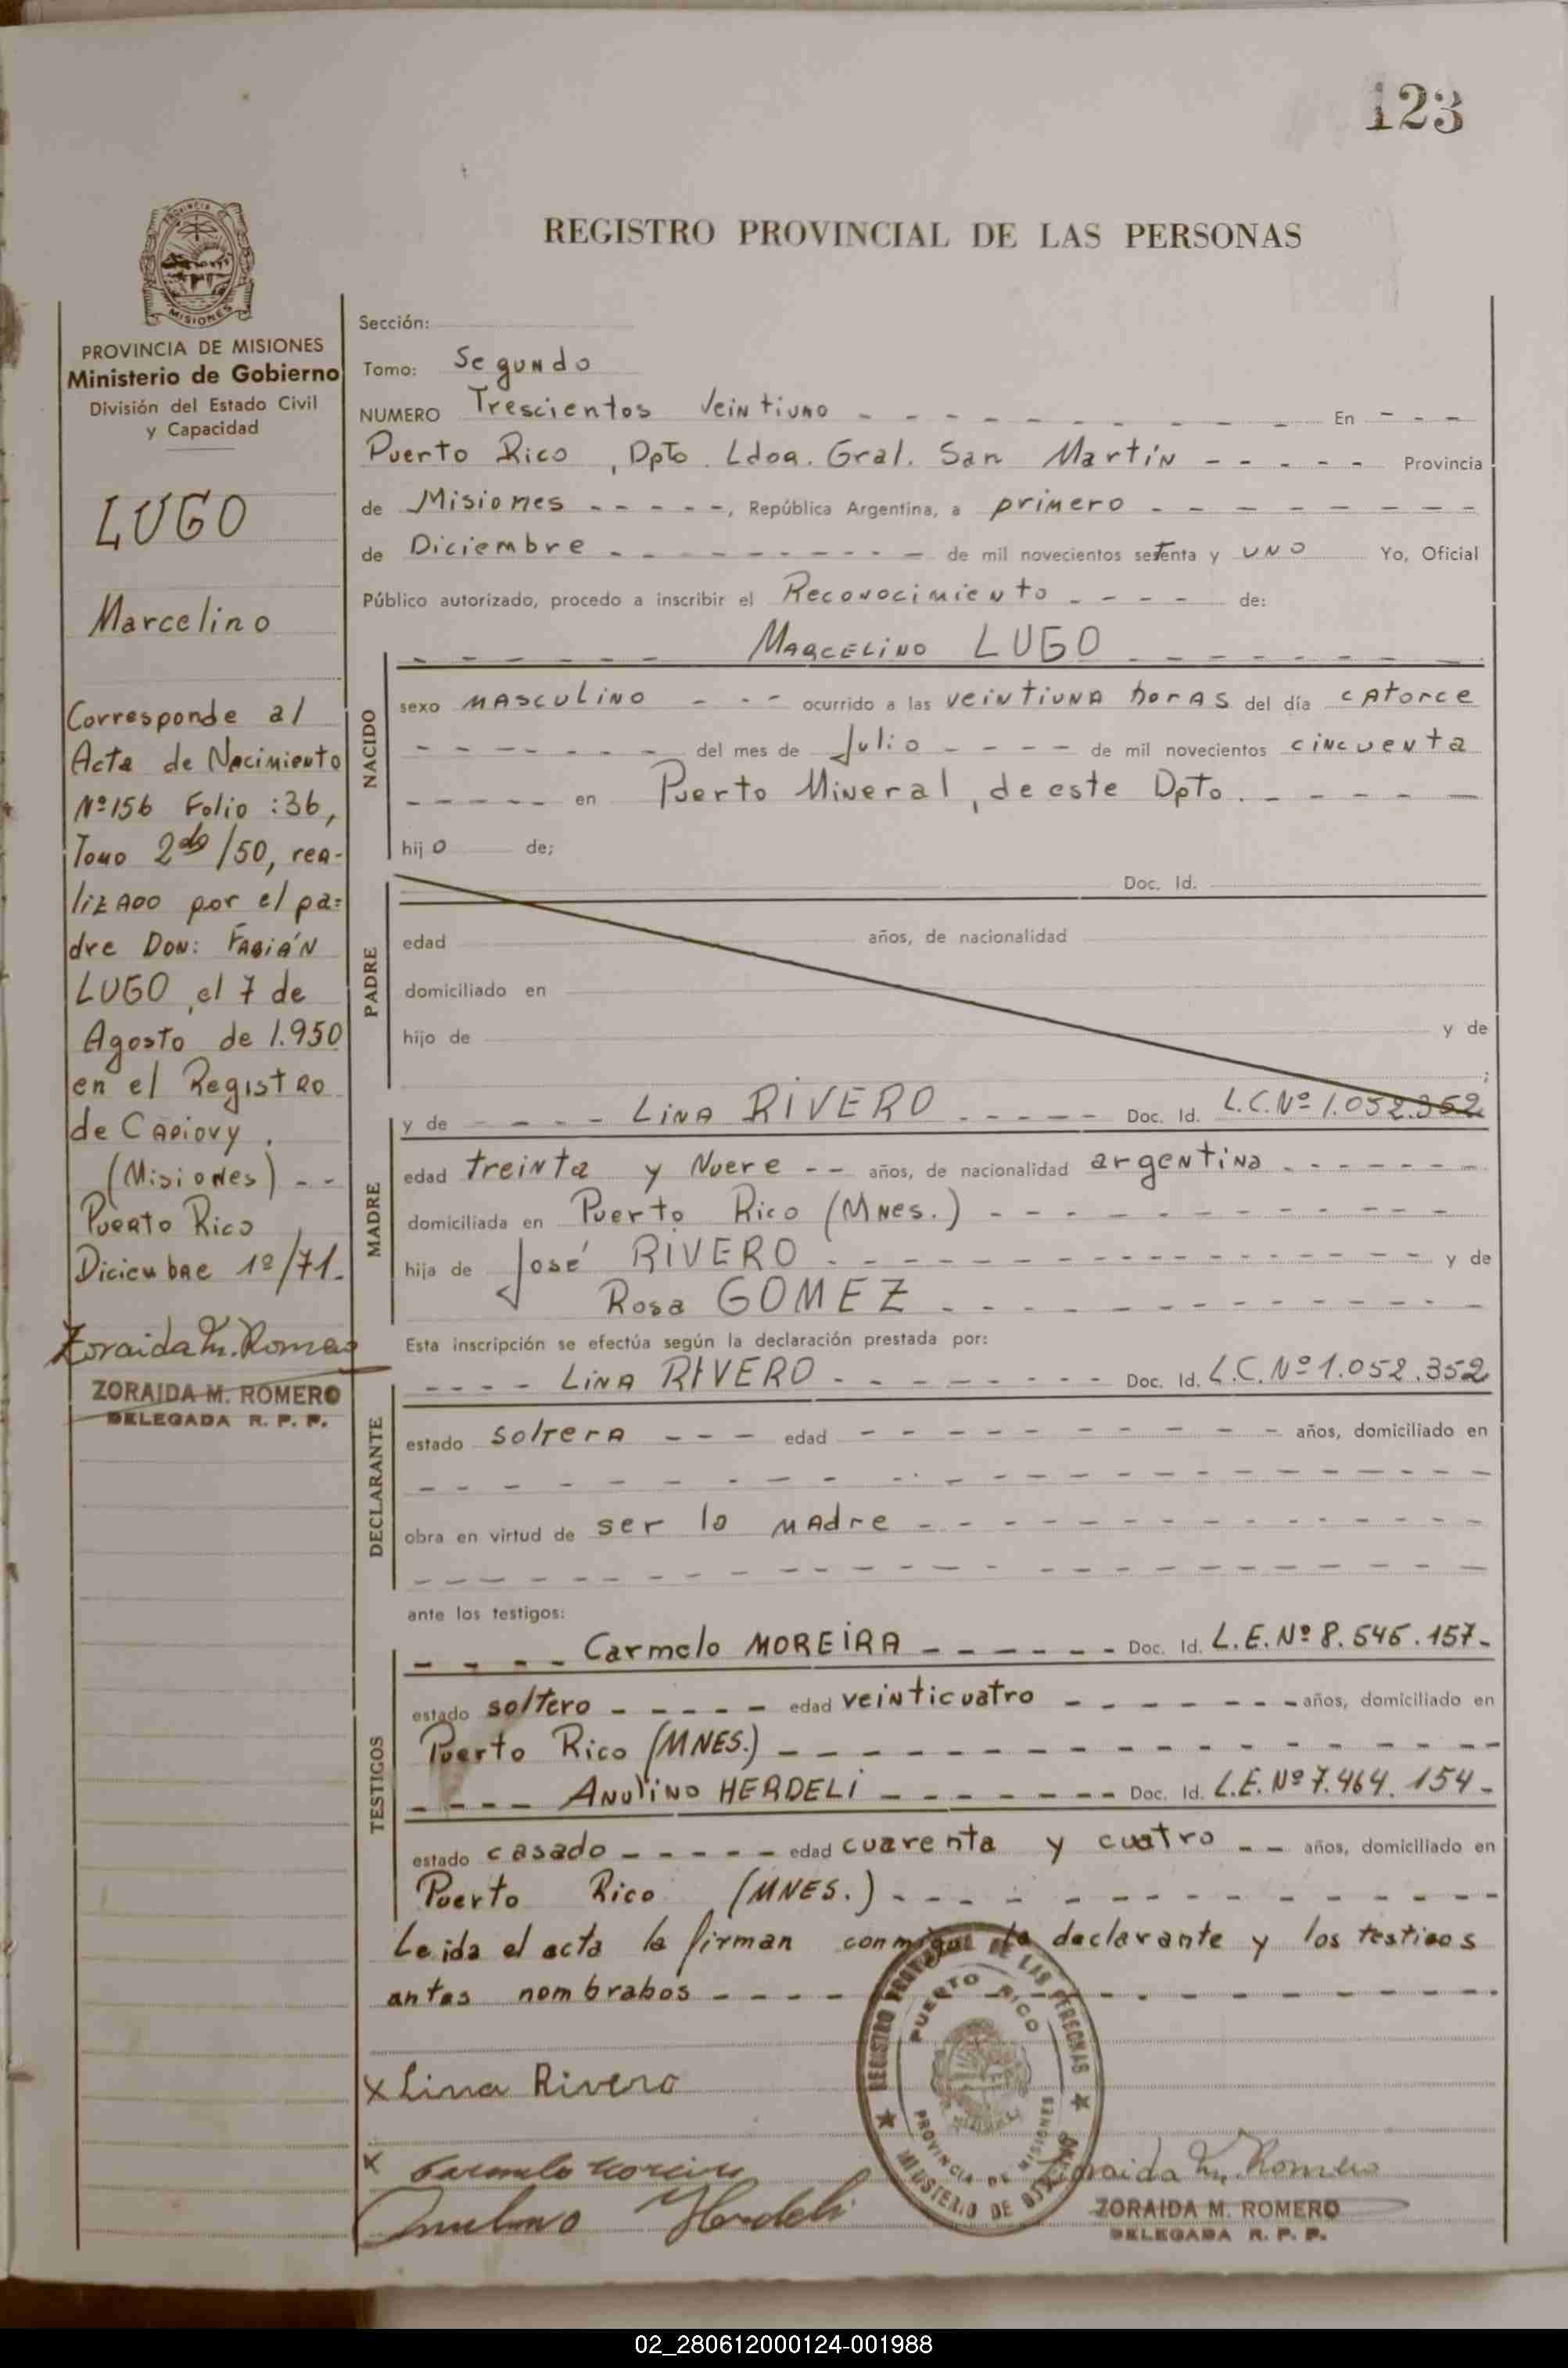 123
REGISTRO PROVINCIAL DE LAS PERSONAS
PROVINCIA DE MISIONES
Ministerio de Gobierno
División del Estado Civil
y Capacidad
LUGO
Marcelino
Corresponde al
Acta de Nacimiento
Nº156 Folio :36,
Tomo 2do/50, rea-
lizado por el pa=
dre Don: FABIÁN
LUGO, el 7 de
Agosto de 1.950
en el Registro
de Capiovy.
(Misiones) - -
Puerto Rico,
Diciembre 1º/71.
Zoraida M. Romero
ZORAIDA M. ROMERO
DELEGADA R. P. P.
Sección:
Tomo: Segundo
NUMERO Trescientos Veintiuno - - - - - - - - - En - - -
Puerto Rico, Dpto. Ldoa. Gral. San Martín - - - - - Provincia
de Misiones - - - - -, República Argentina, a primero - - - - - - - -
de Diciembre - - - - - - - - - de mil novecientos setenta y UNO Yo, Oficial
Público autorizado, procedo a inscribir el Reconocimiento - - - - de:
- - - - - - MARCELINO LUGO - - - - - - - -
NACIDO
sexo MASCULINO - - - ocurrido a las veintiuna horas del día catorce
- - - - - - - del mes de Julio - - - - de mil novecientos cincuenta
- - - - - en Puerto Mineral, de este Dpto. - - - - -
hijo de;
PADRE
Doc. Id.
edad años, de nacionalidad
domiciliado en
hijo de y de
;
MADRE
y de - - - - LINA RIVERO - - - - - Doc. Id. L.C.Nº 1.052.352
edad treinta y Nueve - - años, de nacionalidad argentina - - - - - -
domiciliada en Puerto Rico (Mnes.) - - - - - - - - - - - -
hija de José RIVERO - - - - - - - - - - - - - - - - y de
Rosa GOMEZ - - - - - - - - - - - - - -
Esta inscripción se efectúa según la declaración prestada por:
DECLARANTE
- - - - LINA RIVERO - - - - - - - - Doc. Id. L.C.Nº1.052.352
estado soltera - - - edad - - - - - - - - - - - años, domiciliado en
- - - - - - - - - - - - - - - - - - - - - - - -
obra en virtud de ser la madre - - - - - - - - - - - - - -
- - - - - - - - - - - - - - - - - - - - - - - -
ante los testigos:
TESTIGOS
- - - - Carmelo MOREIRA - - - - - - Doc. Id. L.E.Nº 8.545.157-
estado soltero - - - - - edad veinticuatro - - - - - - - años, domiciliado en
Puerto Rico (MNES.) - - - - - - - - - - - - - - - - - -
- - - - ANULINO HERDELI - - - - - - - Doc. Id. L.E.Nº 7.464.154-
estado casado - - - - - edad cuarenta y cuatro - - años, domiciliado en
Puerto Rico (MNES.) - - - - - - - - - - - - - - -
Leida el acta la firman conmigo la declarante y los testigos
antes nombrabos - - - - - - - - - - - - - - -
REGISTRO PROVINCIAL DE LAS PERSONAS
PUERTO RICO
PROVINCIA DE MISIONES
MINISTERIO DE GOBIERNO
x Lina Rivero
x Carmelo Moreira
Anulino Herdeli
Zoraida M. Romero
ZORAIDA M. ROMERO
DELEGADA R. P. P.
02_280612000124-001988